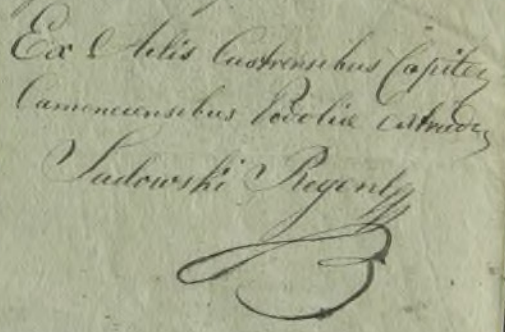 Ex Actis Castrensibus Capite
Camenecensibus Podoliæ extradr
Sadowski Regent